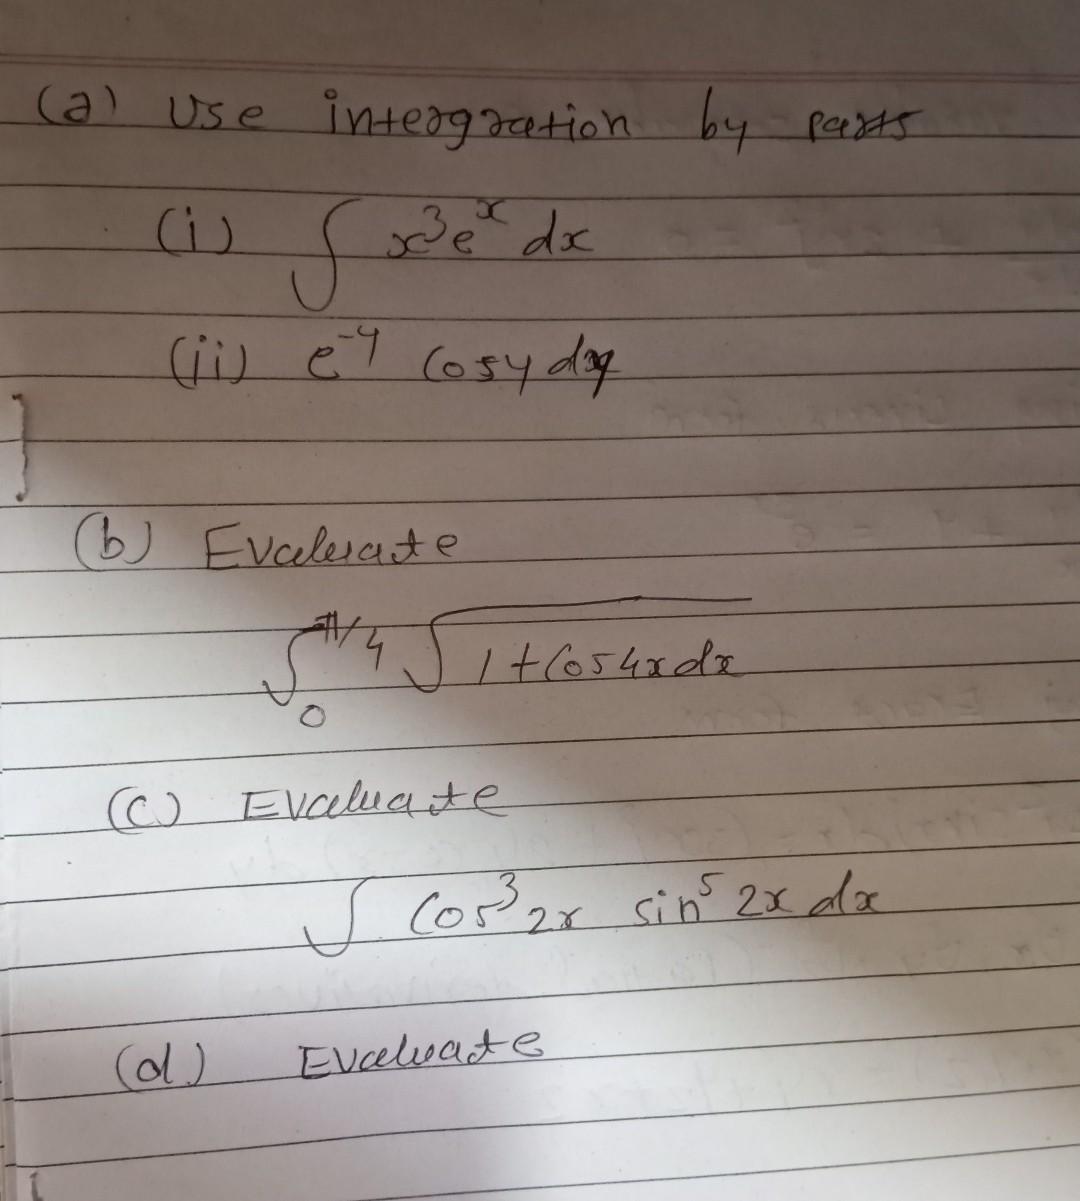 (a) Use intergration by parts
(i) ∫ x³eˣ dx
(ii) e⁻ʸ Cosy dy
(b) Evaluate
∫₀^π/4 √1+Cos4xdx
(C) Evaluate
∫ Cos³2x sin⁵ 2x dx
(d) Evaluate